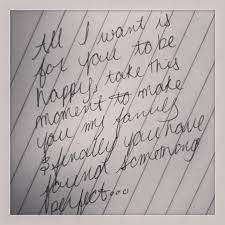 All I want is
for you to be
happy, take this
moment to make
you my family
& finally you have
found something
perfect....